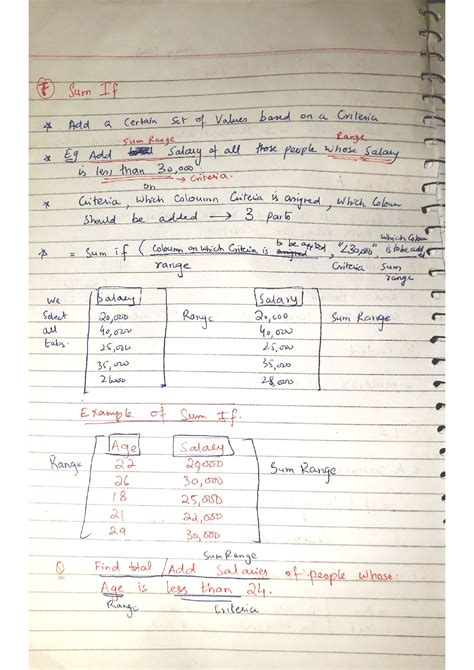 ⑦ Sum If
* Add a Certain Set of Values based on a Criteria
Sum Range Range
* Eg Add Salary of all those people whose Salary
is less than 30,000 → Criteria.
on
* Criteria, which Coloumn Criteria is assigned, which Coloum
should be added → 3 parts
to be applied which Coloum
* = Sum if (Coloumn on which Criteria is assigned, "<30,000" is to be add
range Criteria Sum
range
We Salary Salary
Select 20,000 Range 20,000 Sum Range
all 40,000 40,000
tabs. 25,000 25,000
35,000 35,000
28,000
Example of Sum If.
Age Salary
Range 22 29,000 Sum Range
26 30,000
18 25,000
21 22,000
29 30,000
Sum Range
Q Find total / Add Salaries of people whose:
Age is less than 24.
Range Criteria